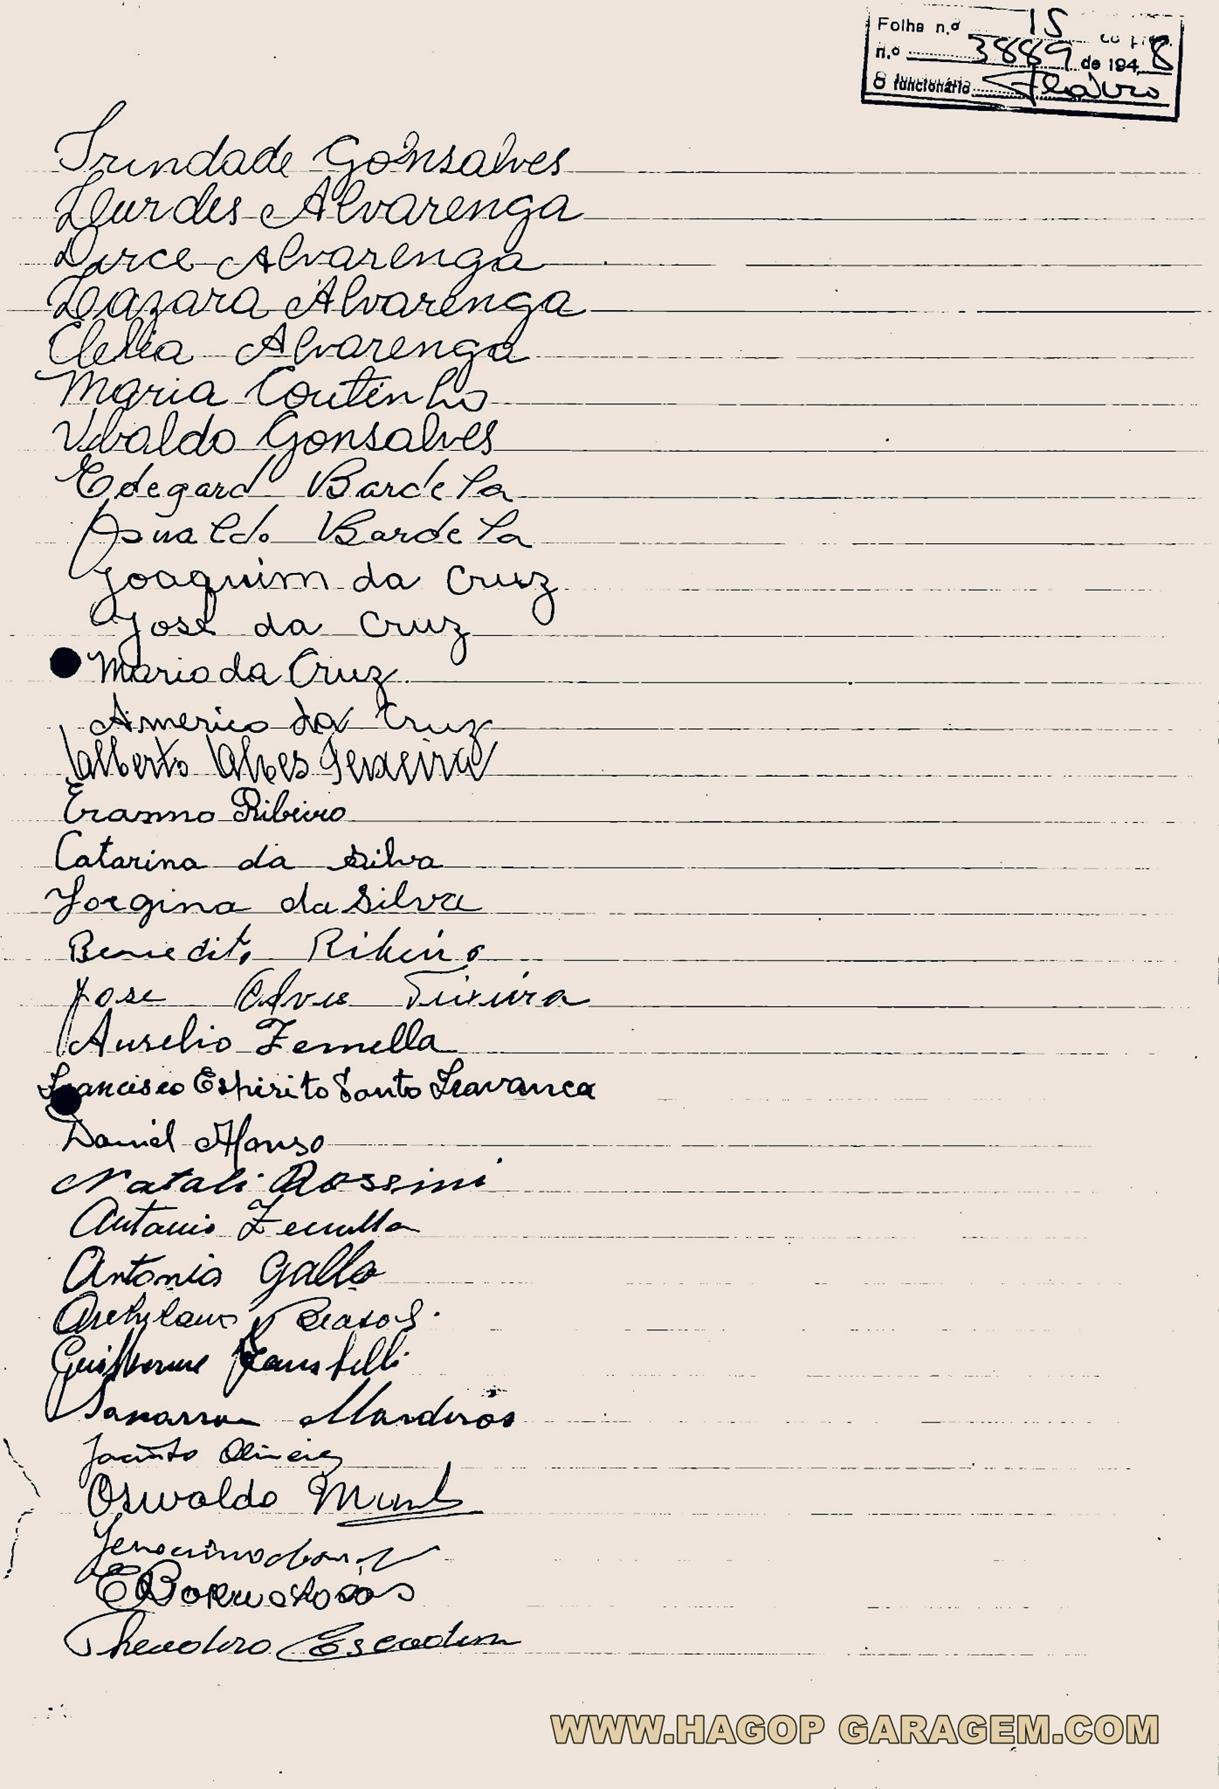 Folha n.º 15 do proc.
n.º 3889 de 1948
O funcionário
Trindade Gonsalves
Lourdes Alvarenga
Dirce Alvarenga
Lazara Alvarenga
Clelia Alvarenga
Maria Coutinho
Ubaldo Gonsalves
Edegard Bardela
Osvaldo Bardela
Joaquim da Cruz
José da Cruz
Mario da Cruz
Americo da Cruz
Alberto Alves Teixeira
Erasmo Ribeiro
Catarina da Silva
Jorgina da Silva
Benedito Ribeiro
Jose Alves Teixeira
Aurelio Zemella
Francisco Espirito Santo Travanca
Daniel Afonso
Natali Rossini
Antonio Zemella
Antonia Gallo
Guilherme
Mardiros
Jacinto Oliveira
Oswaldo
Theodoro
WWW.HAGOP GARAGEM.COM